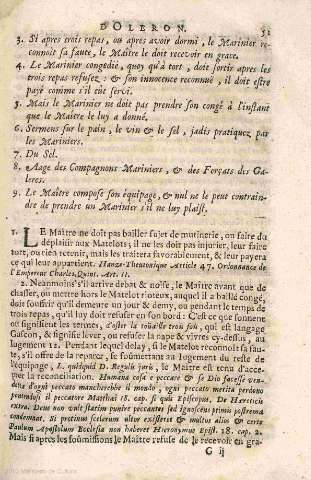 D'OLERON. 51
3. Si apres trois repas, ou apres avoir dormi, le Marinier re-
connoit sa faute, le Maître le doit recevoir en grace.
4. Le Marinier congedié, quoy qu'à tort, doit sortir apres les
trois repas refusez : & son innocence reconnuë, il doit estre
payé comme s'il eût servi.
5. Mais le Marinier ne doit pas prendre son congé à l'instant
que le Maître le luy a donné.
6. Sermens sur le pain, le vin & le sel, jadis pratiquez par
les Mariniers.
7. Du Sel.
8. Aage des Compagnons Mariniers, & des Forçats des Ga-
leres.
9. Le Maître compose son équipage, & nul ne le peut contrain-
dre de prendre un Marinier s'il ne luy plaist.
1. LE Maître ne doit pas bailler sujet de mutinerie, ou faire du
déplaisir aux Matelots, il ne les doit pas injurier, leur faire
tort, ou rien retenir, mais les traitera favorablement, & leur payera
ce qui leur appartient. Hanze-Theutonique Article 47. Ordonnance de
l'Empereur Charles-Quint. Art. 11.
2. Neanmoins s'il arrive debat & noise, le Maître avant que de
chasser, ou mettre hors le Matelot rioteux, auquel il a baillé congé,
doit souffrir qu'il demeure un jour & demy, ou pendant le temps de
trois repas, qu'il luy doit refuser en son bord : C'est ce que sonnent
ou signifient les termes, d'oster la toüaille trois fois, qui est langage
Gascon, & signifie lever, ou refuser la nape & vivres cy-dessus, au
Jugement 11. Pendant lequel delay, si le Matelot reconnoit sa fau-
te, s'il offre de la reparer, se soûmettant au Jugement du reste de
l'équipage, L. quidquid D. Reguli juris, le Maître est tenu d'acce-
pter la reconciliation. Humana cosa è peccare & se Dio facesse ven-
detta d'ogni peccato mancherebbe il mondo, ogni peccato merita perdono
pentendosi il peccatore Matthæi 18. cap. si quis Episcopus. De Hæreticis
extra. Deus non vult statim punire peccantes sed ignoscens primis postrema
condemnat. Si protinus scelerum ultor existeret & multos alios & certe
Paulum Apostolum Ecclesia non haberet Hieronymus Epist. 18. cap. 2.
Mais si apres les soumissions le Maître refuse de le recevoir en gra-
G ij